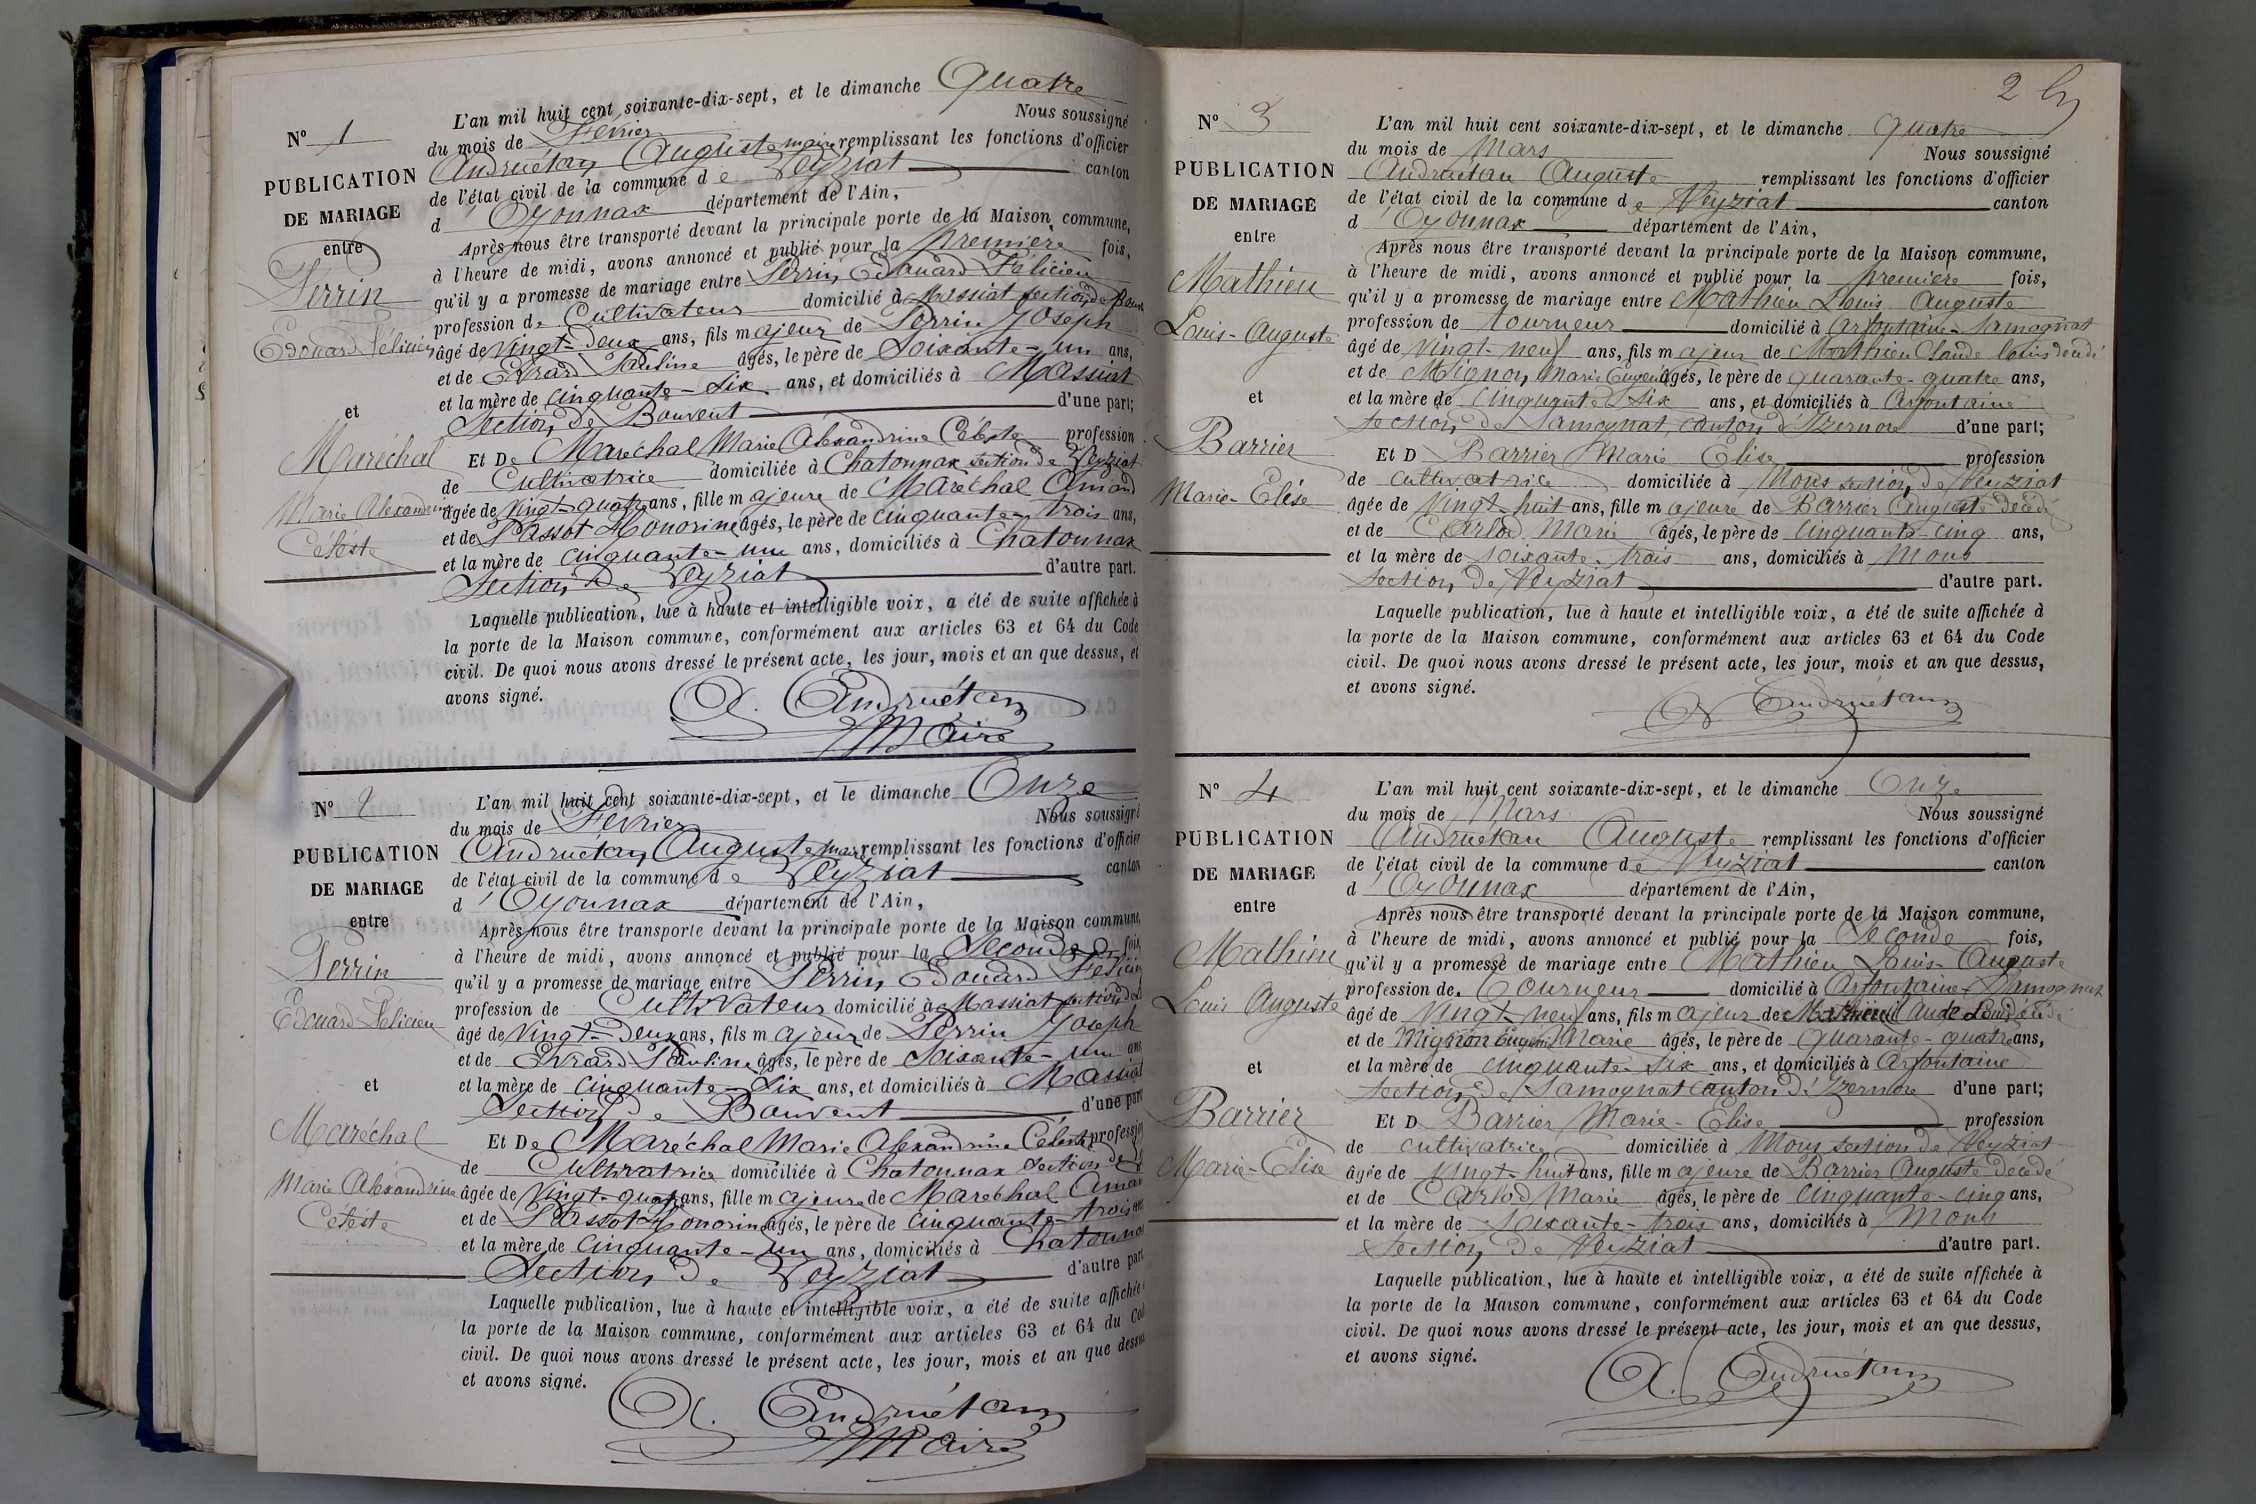 N° 1
PUBLICATION
DE MARIAGE
entre
Perrin
Edouard Félicien
et
Maréchal
Marie Alexandrine
Céleste
L'an mil huit cent soixante-dix-sept, et le dimanche Quatre
du mois de Février Nous soussigné
Andruétan Auguste maire remplissant les fonctions d'officier
de l'état civil de la commune de Veyziat canton
d'Oyonnax département de l'Ain,
Après nous être transporté devant la principale porte de la Maison commune,
à l'heure de midi, avons annoncé et publié pour la première fois,
qu'il y a promesse de mariage entre Perrin Edouard Félicien
profession de Cultivateur domicilié à Massiat section de
âgé de Vingt-deux ans, fils majeur de Perrin Joseph
et de Evrard Pauline âgés, le père de Soixante-un ans,
et la mère de cinquante-six ans, et domiciliés à Massiat
Section de Bouvent d'une part;
ET De Maréchal Marie Alexandrine Céleste profession
de Cultivatrice domiciliée à Chatonnax section de Veyziat
âgée de Vingt-quatre ans, fille majeure de Maréchal Amand
et de Passot Honorine âgés, le père de cinquante-trois ans,
et la mère de cinquante-un ans, domiciliés à Chatonnax
Section de Veyziat d'autre part.
Laquelle publication, lue à haute et intelligible voix, a été de suite affichée à
la porte de la Maison commune, conformément aux articles 63 et 64 du Code
civil. De quoi nous avons dressé le présent acte, les jour, mois et an que dessus, et
avons signé.
A. Andruétan
Maire
N° 2
PUBLICATION
DE MARIAGE
entre
Perrin
Edouard Félicien
et
Maréchal
Marie Alexandrine
Céleste
L'an mil huit cent soixante-dix-sept, et le dimanche Onze
du mois de Février Nous soussigné
Andruétan Auguste maire remplissant les fonctions d'officier
de l'état civil de la commune de Veyziat canton
d'Oyonnax département de l'Ain,
Après nous être transporté devant la principale porte de la Maison commune,
à l'heure de midi, avons annoncé et publié pour la Seconde fois,
qu'il y a promesse de mariage entre Perrin Edouard Félicien
profession de Cultivateur domicilié à Massiat section de
âgé de Vingt-deux ans, fils majeur de Perrin Joseph
et de Evrard Pauline âgés, le père de Soixante-un ans
et la mère de cinquante-six ans, et domiciliés à Massiat
Section de Bouvent d'une part
ET De Maréchal Marie Alexandrine Céleste profession
de Cultivatrice domiciliée à Chatonnax section de
âgée de Vingt-quatre ans, fille majeure de Maréchal Amand
et de Passot Honorine âgés, le père de cinquante-trois ans
et la mère de cinquante-un ans, domiciliés à Chatonnax
Section de Veyziat d'autre part
Laquelle publication, lue à haute et intelligible voix, a été de suite affichée à
la porte de la Maison commune, conformément aux articles 63 et 64 du Code
civil. De quoi nous avons dressé le présent acte, les jour, mois et an que dessus
et avons signé.
A. Andruétan
Maire
2
N° 3
PUBLICATION
DE MARIAGE
entre
Mathieu
Louis-Auguste
et
Barrier
Marie-Elise
L'an mil huit cent soixante-dix-sept, et le dimanche quatre
du mois de Mars Nous soussigné
Andruétan Auguste remplissant les fonctions d'officier
de l'état civil de la commune de Veyziat canton
d'Oyonnax département de l'Ain,
Après nous être transporté devant la principale porte de la Maison commune,
à l'heure de midi, avons annoncé et publié pour la première fois,
qu'il y a promesse de mariage entre Mathieu Louis Auguste
profession de tourneur domicilié à Arfontaine-Samognat
âgé de vingt-neuf ans, fils majeur de Mathieu Claude Louis décédé
et de Mignon Marie Eugénie âgés, le père de quarante-quatre ans,
et la mère de cinquante six ans, et domiciliés à Arfontaine
section de Samognat, canton d'Izernore d'une part;
ET D Barrier Marie Elise profession
de cultivatrice domiciliée à Mons section de Veyziat
âgée de Vingt-huit ans, fille majeure de Barrier Auguste décédé
et de Carlod Marie âgés, le père de cinquante-cinq ans,
et la mère de soixante-trois ans, domiciliés à Mons
section de Veyziat d'autre part.
Laquelle publication, lue à haute et intelligible voix, a été de suite affichée à
la porte de la Maison commune, conformément aux articles 63 et 64 du Code
civil. De quoi nous avons dressé le présent acte, les jour, mois et an que dessus,
et avons signé.
A Andruétan
N° 4
PUBLICATION
DE MARIAGE
entre
Mathieu
Louis Auguste
et
Barrier
Marie-Elise
L'an mil huit cent soixante-dix-sept, et le dimanche Onze
du mois de Mars Nous soussigné
Andruétan Auguste remplissant les fonctions d'officier
de l'état civil de la commune de Veyziat canton
d'Oyonnax département de l'Ain,
Après nous être transporté devant la principale porte de la Maison commune,
à l'heure de midi, avons annoncé et publié pour la Seconde fois,
qu'il y a promesse de mariage entre Mathieu Louis-Auguste
profession de Tourneur domicilié à Arfontaine-Samognat
âgé de Vingt-neuf ans, fils majeur de Mathieu Claude Louis décédé
et de Mignon Eugénie Marie âgés, le père de Quarante-quatre ans,
et la mère de cinquante-six ans, et domiciliés à Arfontaine
section de Samognat canton d'Izernore d'une part;
ET D Barrier Marie-Elise profession
de cultivatrice domiciliée à Mons section de Veyziat
âgée de vingt-huit ans, fille majeure de Barrier Auguste décédé
et de Carlod Marie âgés, le père de cinquante-cinq ans,
et la mère de soixante-trois ans, domiciliés à Mons
section de Veyziat d'autre part.
Laquelle publication, lue à haute et intelligible voix, a été de suite affichée à
la porte de la Maison commune, conformément aux articles 63 et 64 du Code
civil. De quoi nous avons dressé le présent acte, les jour, mois et an que dessus,
et avons signé.
A. Andruétan